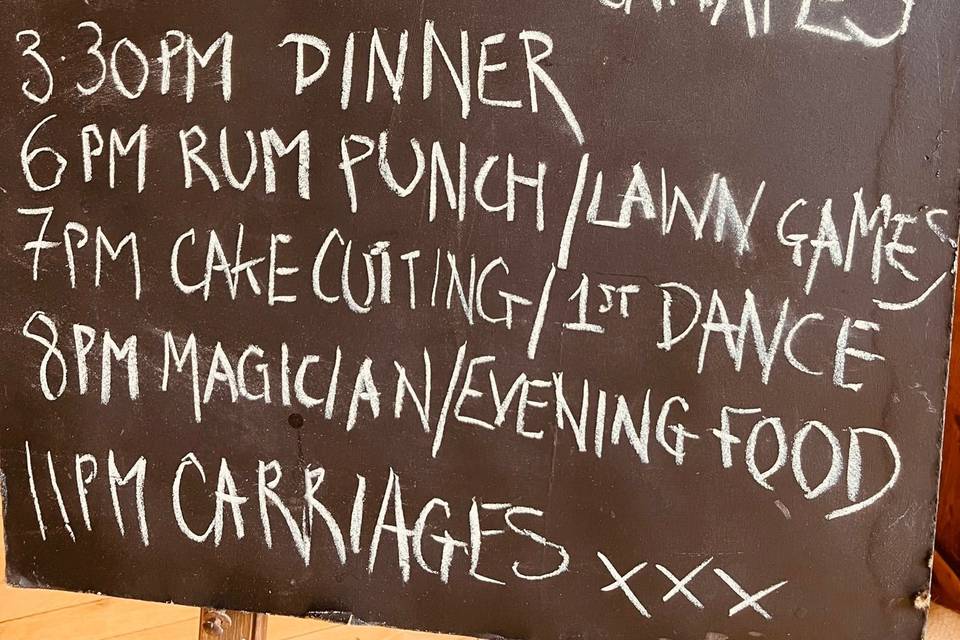 3.30PM DINNER
6PM RUM PUNCH/LAWN GAMES
7PM CAKE CUTTING/1ST DANCE
8PM MAGICIAN/EVENING FOOD
11PM CARRIAGES xxx